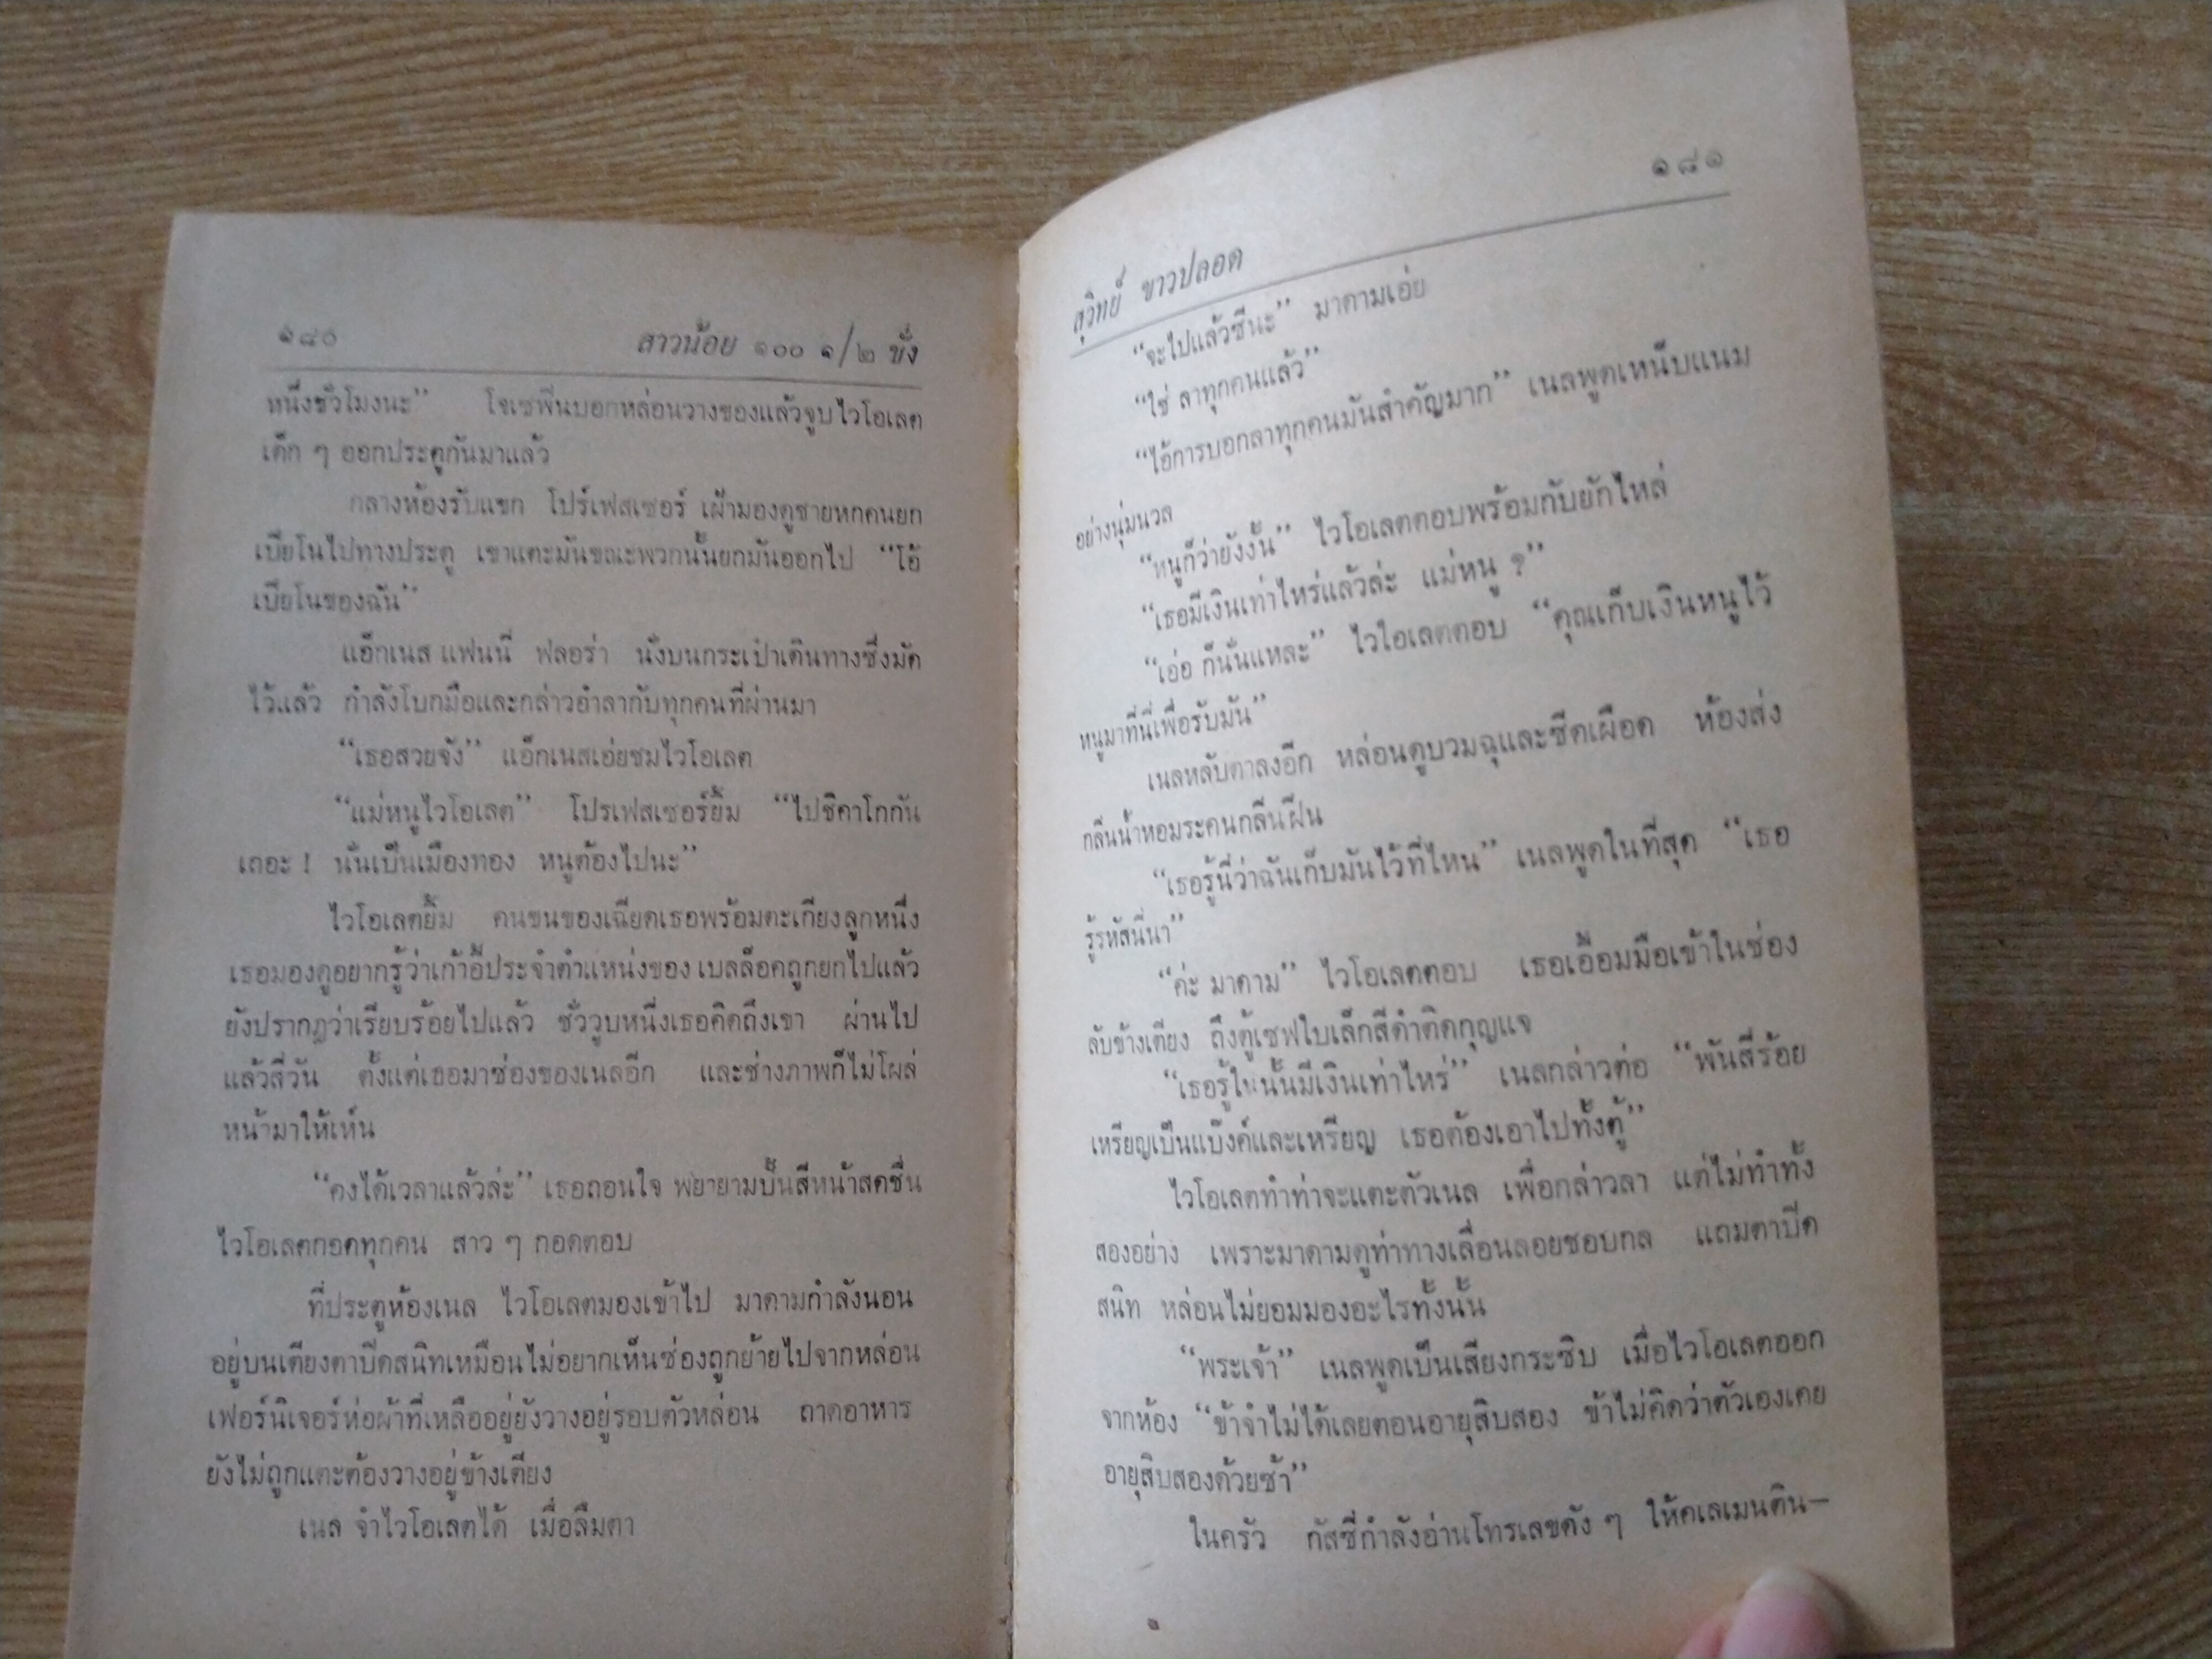 ๑๘๐ สาวน้อย ๑๐๐ ๑/๒ ชั่ง
หนึ่งชั่วโมงนะ” โจเซฟีนบอกหล่อนวางของแล้วจูบไวโอเลต
เด็ก ๆ ออกประตูกันมาแล้ว
กลางห้องรับแขก โปร์เฟสเซอร์ เฝ้ามองดูชายหกคนยก
เปียโนไปทางประตู เขาแตะมันขณะพวกนั้นยกมันออกไป “โอ้
เปียโนของฉัน”
แอ็กเนส แฟนนี่ ฟลอร่า นั่งบนกระเป๋าเดินทางซึ่งมัด
ไว้แล้ว กำลังโบกมือและกล่าวอำลากับทุกคนที่ผ่านมา
“เธอสวยจัง” แอ็กเนสเอ่ยชมไวโอเลต
“แม่หนูไวโอเลต” โปรเฟสเซอร์ยิ้ม “ไปชิคาโกกัน
เถอะ ! นั่นเป็นเมืองทอง หนูต้องไปนะ”
ไวโอเลตยิ้ม คนขนของเฉียดเธอพร้อมตะเกียงลูกหนึ่ง
เธอมองดูอยากรู้ว่าเก้าอี้ประจำตำแหน่งของ เบลล็อคถูกยกไปแล้ว
ยังปรากฏว่าเรียบร้อยไปแล้ว ชั่ววูบหนึ่งเธอคิดถึงเขา ผ่านไป
แล้วสี่วัน ตั้งแต่เธอมาซ่องของเนลอีก และช่างภาพก็ไม่โผล่
หน้ามาให้เห็น
“คงได้เวลาแล้วล่ะ” เธอถอนใจ พยายามปั้นสีหน้าสดชื่น
ไวโอเลตกอดทุกคน สาว ๆ กอดตอบ
ที่ประตูห้องเนล ไวโอเลตมองเข้าไป มาดามกำลังนอน
อยู่บนเตียงตาปิดสนิทเหมือนไม่อยากเห็นซ่องถูกย้ายไปจากหล่อน
เฟอร์นิเจอร์ห่อผ้าที่เหลืออยู่ยังวางอยู่รอบตัวหล่อน ถาดอาหาร
ยังไม่ถูกแตะต้องวางอยู่ข้างเตียง
เนล จำไวโอเลตได้ เมื่อลืมตา
สุวิทย์ ขาวปลอด ๑๘๑
“จะไปแล้วซีนะ” มาดามเอ่ย
“ใช่ ลาทุกคนแล้ว”
“ไอ้การบอกลาทุกคนมันสำคัญมาก” เนลพูดเหน็บแนม
อย่างนุ่มนวล
“หนูก็ว่ายังงั้น” ไวโอเลตตอบพร้อมกับยักไหล่
“เธอมีเงินเท่าไหร่แล้วล่ะ แม่หนู ?”
“เอ่อ ก็นั่นแหละ” ไวโอเลตตอบ “คุณเก็บเงินหนูไว้
หนูมาที่นี่เพื่อรับมัน”
เนลหลับตาลงอีก หล่อนดูบวมฉุและซีดเผือด ห้องส่ง
กลิ่นน้ำหอมระคนกลิ่นฝิ่น
“เธอรู้นี่ว่าฉันเก็บมันไว้ที่ไหน” เนลพูดในที่สุด “เธอ
รู้รหัสนี่นา”
“ค่ะ มาดาม” ไวโอเลตตอบ เธอเอื้อมมือเข้าในช่อง
ลับข้างเตียง ถึงตู้เซฟใบเล็กสีดำติดกุญแจ
“เธอรู้ไหมนั้นมีเงินเท่าไหร่” เนลกล่าวต่อ “พันสี่ร้อย
เหรียญเป็นแบ๊งค์และเหรียญ เธอต้องเอาไปทั้งตู้”
ไวโอเลตทำท่าจะแตะตัวเนล เพื่อกล่าวลา แต่ไม่ทำทั้ง
สองอย่าง เพราะมาดามดูท่าทางเลื่อนลอยชอบกล แถมตาปิด
สนิท หล่อนไม่ยอมมองอะไรทั้งนั้น
“พระเจ้า” เนลพูดเป็นเสียงกระซิบ เมื่อไวโอเลตออก
จากห้อง “ข้าจำไม่ได้เลยตอนอายุสิบสอง ข้าไม่คิดว่าตัวเองเคย
อายุสิบสองด้วยซ้ำ”
ในครัว กัสซี่กำลังอ่านโทรเลขดัง ๆ ให้คเลเมนติน–